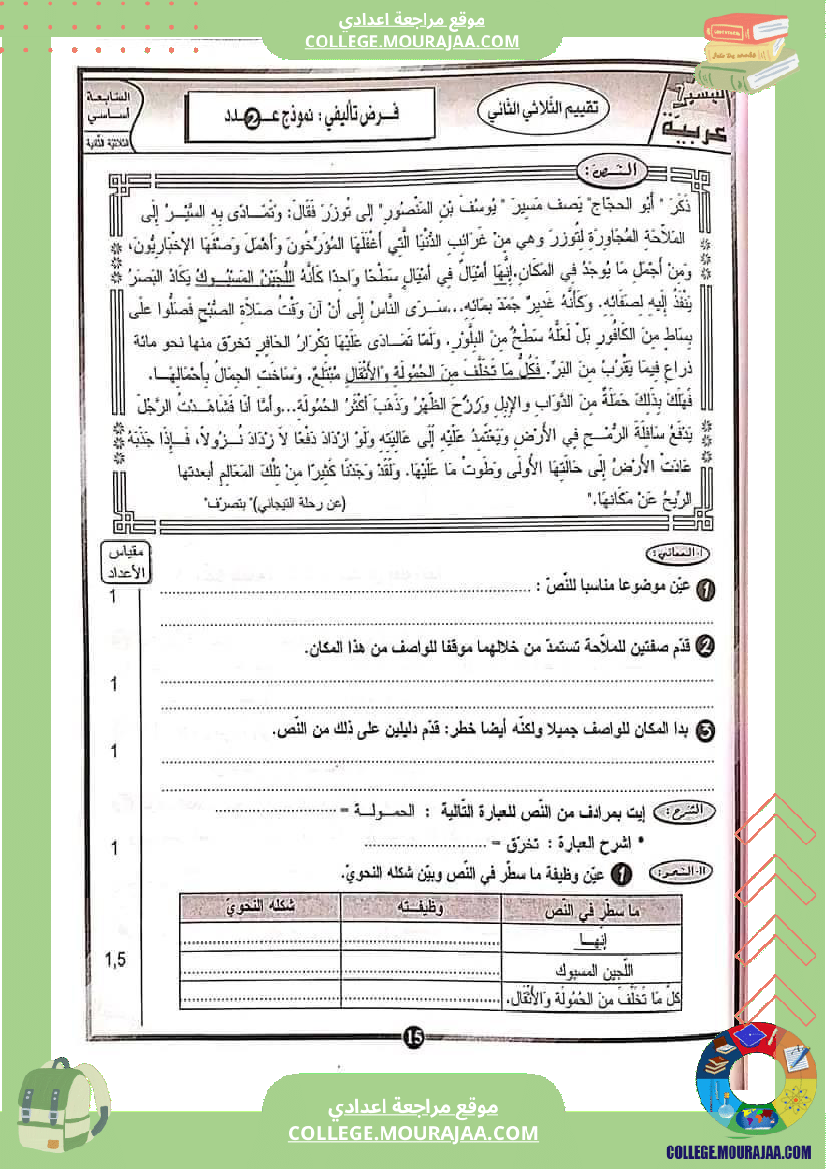 موقع مراجعة اعدادي
COLLEGE.MOURAJAA.COM
السّابعة
أساسي
الثلاثيّة الثّانية
فـرض تأليفي: نموذج عـ2ـدد
تقييم الثّلاثي الثّاني
عربيّة
النّـص:
ذَكَرَ " أَبُو الحجّاج" يَصف مَسِيرَ " يُوسُفَ بْنِ المَنْصُورِ" إلى تُوزَرَ فَقَالَ: وَتَمَـادَى بِهِ السَّيْـرُ إلَى
المَلاّحَة المُجَاوِرَةِ لِتُوزرَ وهي مِنْ غَرَائبِ الدُّنْيَا الَّتِي أَغْفَلَهَا المُؤَرِّخُونَ وَأَهْمَلَ وَصْفَهَا الإخْبَارِيُّونَ،
وَمِنْ أَجْمَلِ مَا يُوجَدُ فِي المَكَانِ.إنَّهَا أَمْيَالٌ فِي أَمْيَالٍ سَطْحًا وَاحِدًا كَأَنَّهُ اللُّجَيْنُ المَسْبُـوكُ يَكَادُ البَصَرُ
يَنْفَذُ إلَيهِ لِصَفَائِهِ. وَكَأَنَّهُ غَدِيرٌ جَمَّدَ بِمَائِهِ...سَرَى النَّاسُ إلَى أَنْ آنَ وَقْتُ صَلاَةِ الصُّبْحِ فَصَلُّوا علَى
بِسَاطٍ مِنَ الكَافُورِ بَلْ لَعَلَّهُ سَطْحٌ مِنْ البلَّوْرِ. وَلَمَّا تَمَـادَى عَلَيْهَا تكْرَارُ الحَافِرِ تخرّق منها نحو مائة
ذراعٍ فِيمَا يَقْرُبُ مِنَ البَرِّ. فَكُلُّ مَا تَخَلَّفَ مِنَ الحُمُولَةِ وَالأَثْقَالِ مُبْتَلَعٌ. وَسَاخَتِ الجِمَالُ بِأَحْمَالِهَـا.
فَهَلَكَ بِذَلِكَ جُمْلَةٌ مِنَ الدَّوَابِ والإِبِلِ وَرُزِحَ الظَّهْرُ وَذَهَبَ أَكْثَرُ الحُمُولَةِ...وأَمَّا أنَا فَشَاهَدْتُ الرَّجُلَ
يَدْفَعُ سَافِلَةَ الرُّمْـحِ فِي الأَرْضِ وَيَعْتَمِدُ عَلَيْهِ إلَى عَالِيَتِهِ وَلَوْ ازْدَادَ دَفْعًا لاَ زْدَادَ نُـزُولاً، فَـإذَا جَذَبَهُ
عَادَتْ الأَرْضُ إلَى حَالَتِهَا الأُولَى وَطَوتْ مَا عَلَيْهَا. وَلَقَدْ وَجَدْنَا كَثِيرًا مِنْ تِلْكَ المَعَالِمِ أبعدتها
الرِّيحُ عَنْ مَكَانهَا."
(عن رحلة التيجاني)" بتصرّف"
مقياس
الأعداد
I- المعاني:
1 عيّن موضوعا مناسبا للنّصّ :
1
2 قدّم صفتين للملاّحة تستمدّ من خلالهما موقفا للواصف من هذا المكان.
1
3 بدا المكان للواصف جميلا ولكنّه أيضا خطر: قدّم دليلين على ذلك من النّص.
1
الشّرح: إيت بمرادف من النّص للعبارة التّالية : الحمـولـة =
* اشرح العبارة : تخرّق =
1
II- النّحو: 1 عيّن وظيفة ما سطّر في النّص وبيّن شكله النحويّ.
ما سطّر في النّص وظيفــته شكله النحويّ
إنّهـا
1,5
اللّجين المسبوك
كلُّ مَا تَخَلَّفَ مِنَ الحُمُولَة وَالأَثْقَال،
15
موقع مراجعة اعدادي
COLLEGE.MOURAJAA.COM
COLLEGE.MOURAJAA.COM